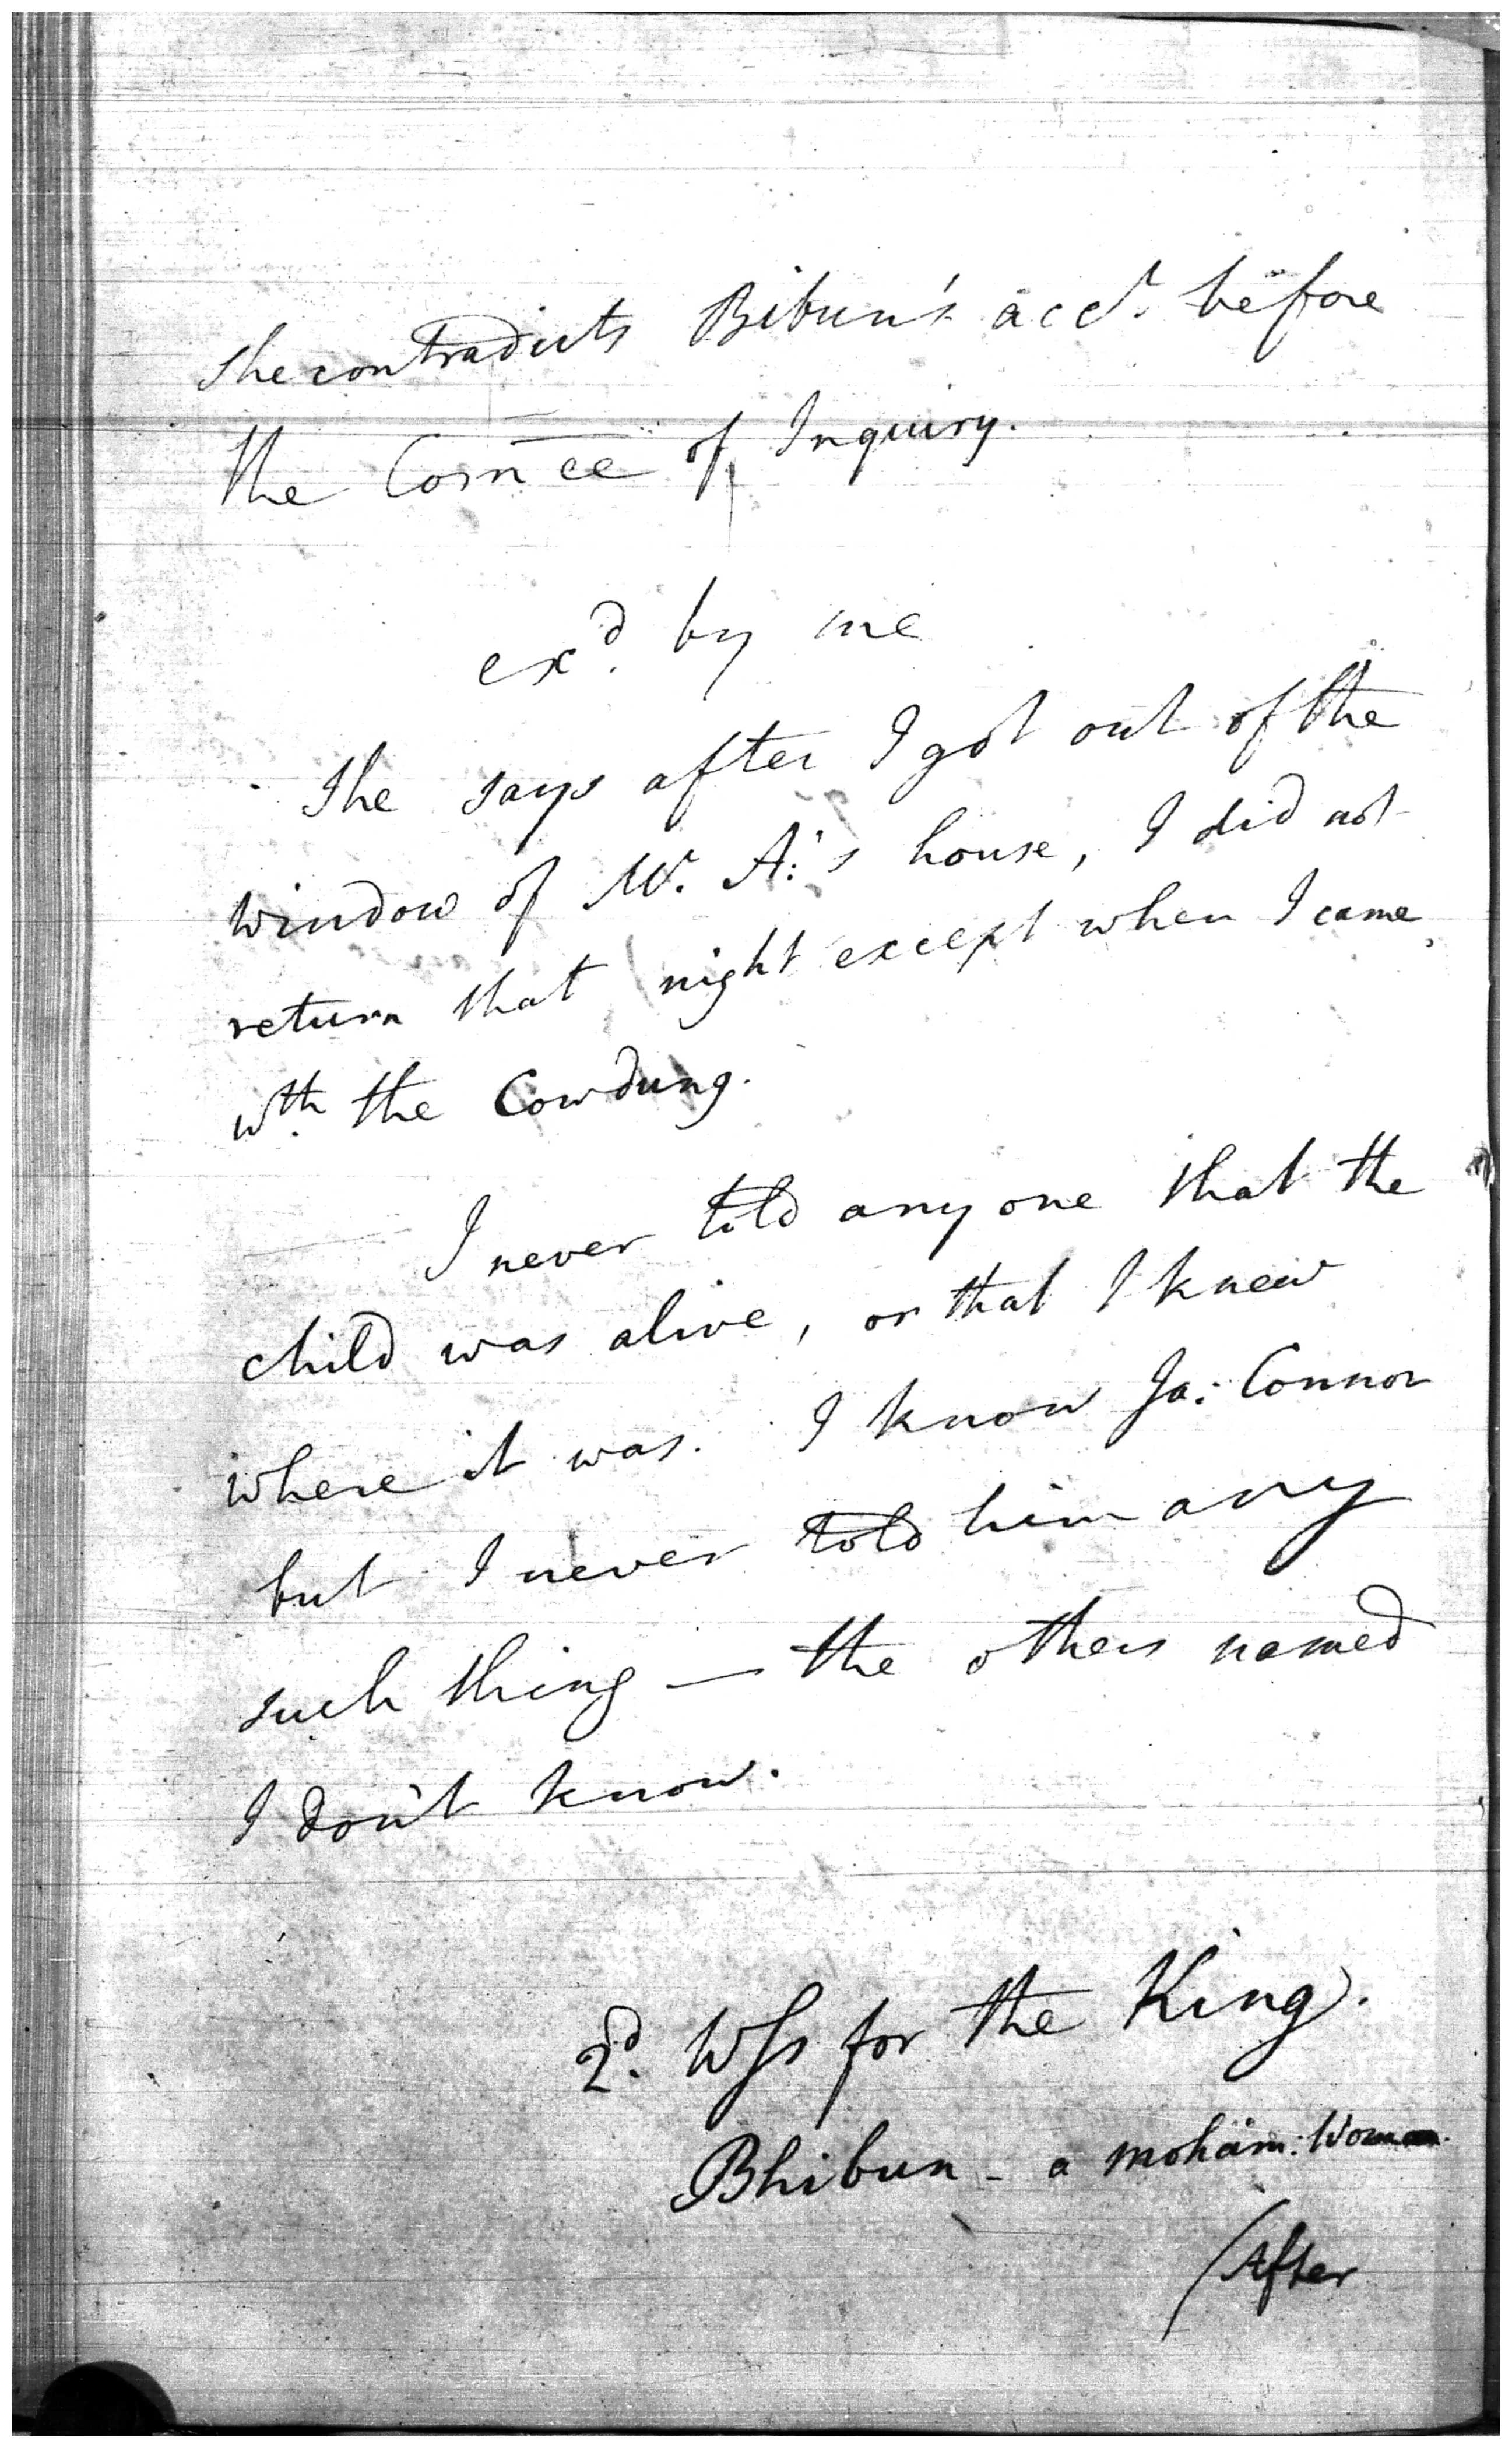 She contradicts Bibun's acct. before
the Comee of Inquiry.
exd. by me
She says after I got out of the
window of Mr. A:'s house, I did not
return that night except when I came
wth. the Cowdung.
I never told any one that the
child was alive, or that I knew
where it was. I know Ja: Connor
but I never told him any
such thing — the others named
I don't know.
2d. Wss for the King.
Bhibun - a moham: Woman.
(After